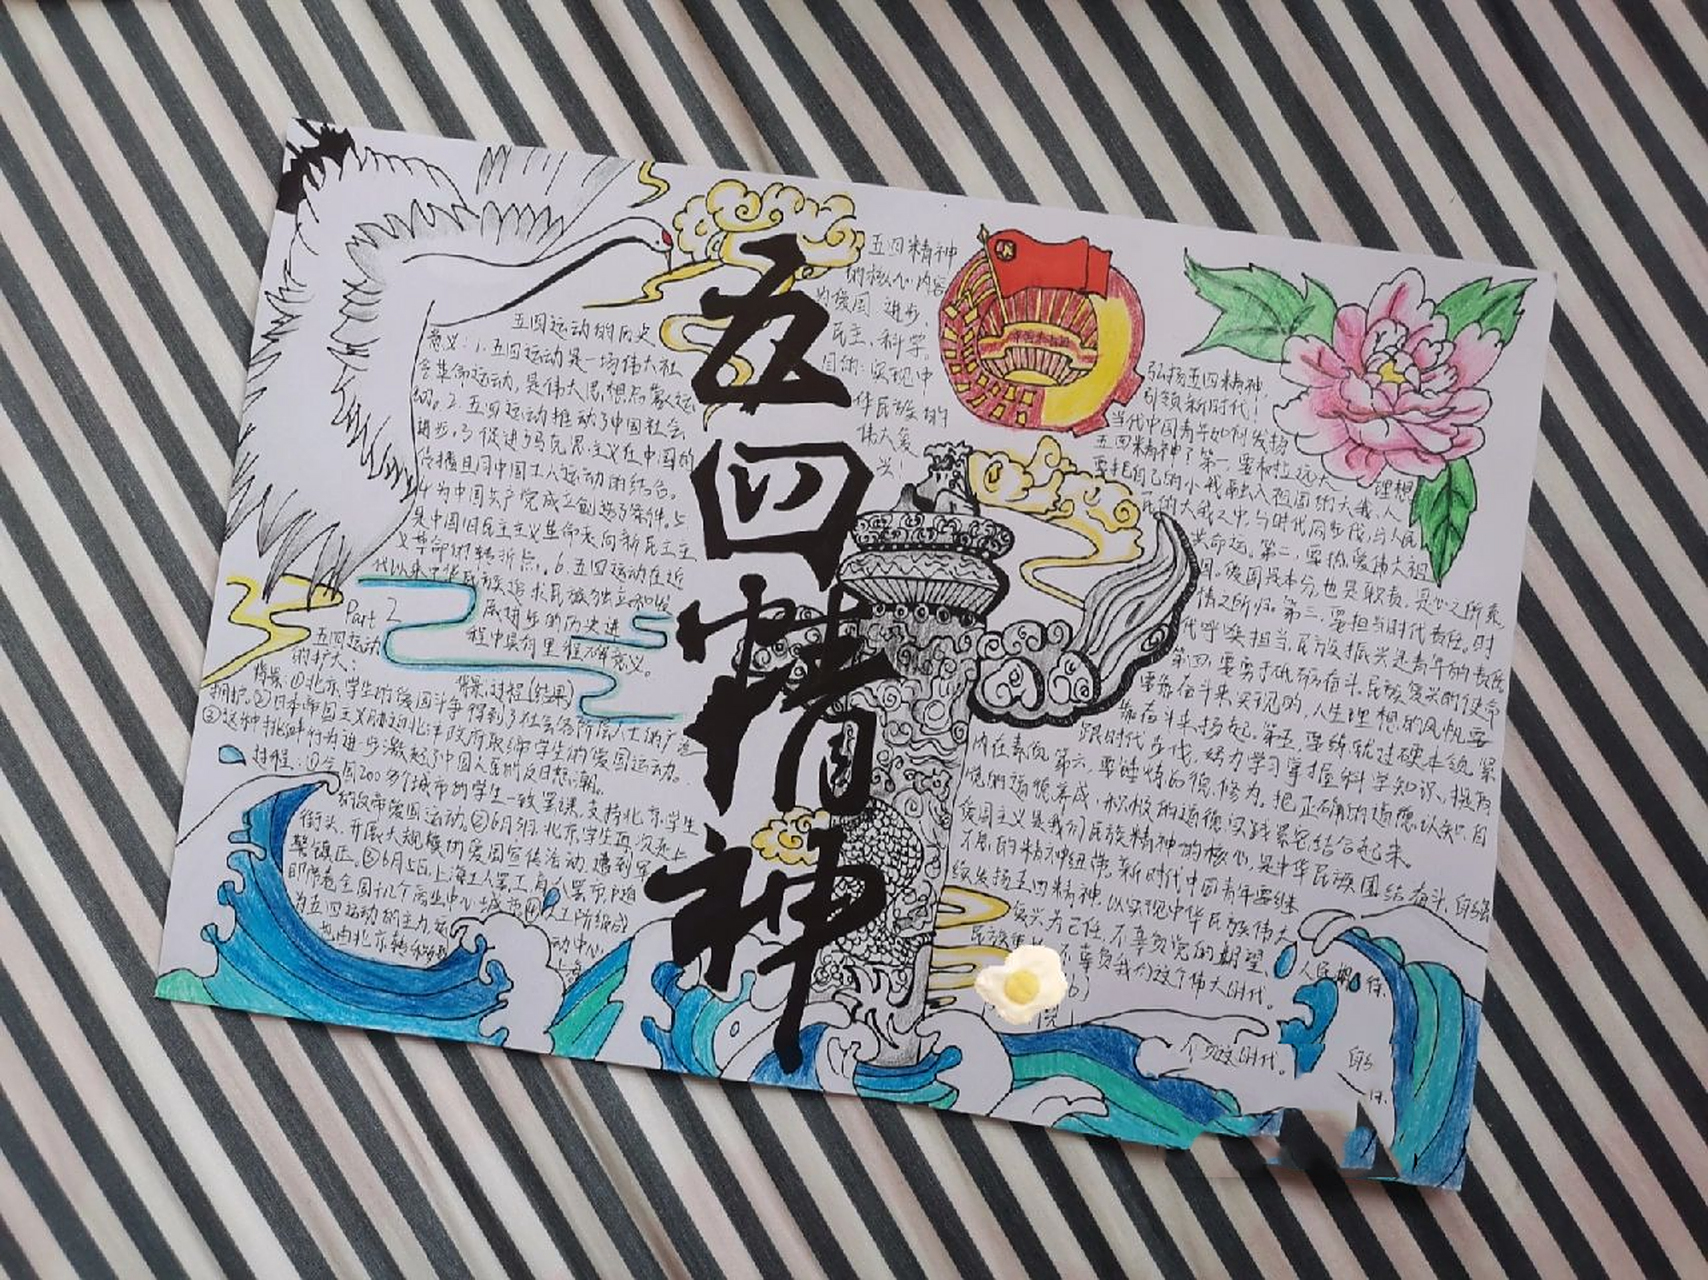 五四精神
五四精神
的核心内容
为爱国、进步、
民主、科学。
目的:实现中
华民族的
伟大复
兴!
五四运动的历史
意义:1.五四运动是一场伟大社
会革命运动,是伟大思想启蒙运
动。2.五四运动推动了中国社会
进步,3.促进了马克思主义在中国的
传播且同中国工人运动的结合。
4.为中国共产党成立创造了条件。5.
是中国旧民主主义革命走向新民主主
义革命的转折点。6.五四运动在近
代以来中华民族追求民族独立和发
展进步的历史进
程中具有里程碑意义。
Part 2
五四运动
的扩大:
背景,过程(结果)
背景:①北京学生的爱国斗争得到了社会各阶层人士的广泛
拥护。②日本帝国主义胁迫北洋政府取缔学生的爱国运动。
③这种挑衅行为进一步激起了中国人民的反日怒潮。
过程:①全国200多个城市的学生一致罢课,支持北京学生
的反帝爱国运动。②6月3日,北京学生再次走上
街头,开展大规模的爱国宣传活动,遭到军
警镇压。③6月5日,上海工人罢工,
为五四运动的主力,
弘扬五四精神,
引领新时代!
当代中国青年如何发扬
五四精神?第一,要树立远大理想
要把自己的小我融入祖国的大我、人
民的大我之中,与时代同步伐,与人民
共命运。第二,要热爱伟大祖
国。爱国是本分,也是职责,是心之所系,
情之所归。第三,要担当时代责任。时
代呼唤担当,民族振兴是青年的责任
第四,要勇于砥砺奋斗。民族复兴的使命
要靠奋斗来实现的,人生理想的风帆要
靠奋斗来扬起。第五,要练就过硬本领,紧
跟时代步伐,努力学习掌握科学知识,提高
内在素质,第六,要锤炼品德修为。把正确的道德认知、自
觉的道德养成、积极的道德实践紧密结合起来。
爱国主义是我们民族精神的核心,是中华民族团结奋斗、自强
不息的精神纽带。新时代中国青年要继
续发扬五四精神,以实现中华民族伟大
复兴为己任,不辜负党的期望、人民期待、
民族重
不辜负我们这个伟大时代。
个
时代。